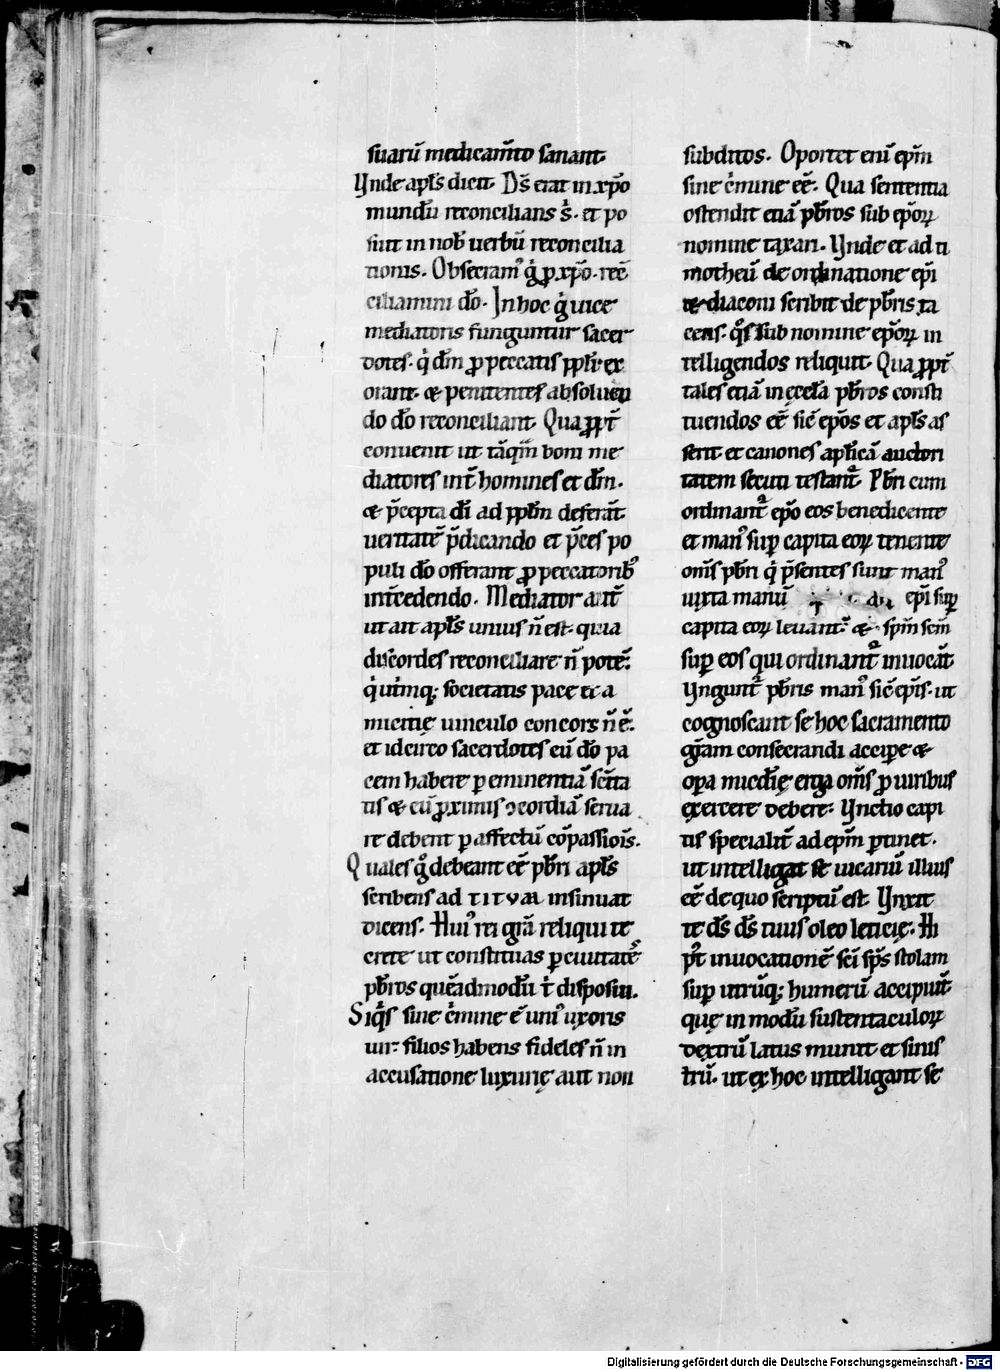 suarū medicam̄to sanant.
Vnde apl̄s dicit. D̄s erat in xp̄o
mundū reconcilians s̄. et po
suit in nob̄ uerbū reconcilia
tionis. Obsecram᾽ g̊ ꝓ xp̄o. rec̄
ciliamini dō. In hoc g̊ uice
mediatoris funguntur sacer
dotes. q̇ dm̄ ꝓ peccatis ppl̄i ex
orant. & penitentes absoluen
do dō reconciliant. Qua ꝓpt̄
conuenit ut tāqm̄ boni me
diatores int̄ homines et dm̄.
& p̄cepta dī ad ppl̄m deferāt.
ueritatē p̄dicando et p̄ces po
puli dō offerant ꝓ peccatorib᾽
int̄cedendo. Mediator aut̄
ut ait apl̄s unius n̄ est. quia
discordes reconciliare n̄ potē.
q̇ utrinq; societatis pace et a
micitię uinculo concors n̄ ē.
et idcirco sacerdotes cū dō pa
cem habere ꝑ eminentiā sc̄ita
tis & cū ꝓximis ꝯcordiā serua
re debent ꝑ affectū cōpassiois̄.
Quales g̊ debeant eē pb̄ri apl̄s
scribens ad TITVM insinuat
dicens. Hui᾽ rei grā reliqui te
crete ut constituas ꝑ ciuitatē
pb̄ros quēadmodū t̄ disposui.
Siq̇s sine c̄mine ē uni᾽ uxoris
uir. filios habens fideles n̄ in
accusatione luxurię aut non
subditos. Oportet enī ep̄m
sine c̄mine eē. Qua sententia
ostendit etiā pb̄ros sub ep̄oꝝ
nomine taxari. Vnde et ad ti
motheū de ordinatione ep̄i
& diaconi scribit de pb̄ris ta
cens. q̊s sub nomine ep̄oꝝ in
telligendos reliquit. Qua ꝓpt̄
tales etiā in ęcclā pb̄ros consti
tuendos eē sic̄ ep̄os et apl̄s as
serit et canones apl̄icā auctori
tatem secuti testant᾽. Pb̄ri cum
ordinant᾽ ep̄o eos benedicente
et man᾽ suꝑ capita eoꝝ tenente
om̄s pb̄ri q̇ p̄sentes sunt man᾽
iuxta manū ep̄i suꝑ
capita eoꝝ leuant. & sp̄m sc̄m
suꝑ eos qui ordinant᾽ inuocāt
Vngunt᾽ pb̄ris man᾽ sic̄ ep̄is. ut
cognoscant se hoc sacramento
gr̄am consecrandi accipere &
oꝑa mīcdię erga om̄s ꝓ uiribus
exercere debere. Vnctio capi
tis specialit̄ ad ep̄m ꝑtinet.
ut intelligat se uicariū illius
eē de quo scriptū est. Vnxit
te d̄s d̄s tuus oleo leticię. Hi
p᾽t inuocationē sc̄i sp̄s stolam
suꝑ utrūq; humerū accipiūt.
quę in modū sustentaculoꝝ
dextrū latus munit et sinis
trū. ut ex hoc intelligant se
Digitalisierung gefördert durch die Deutsche Forschungsgemeinschaft - DFG